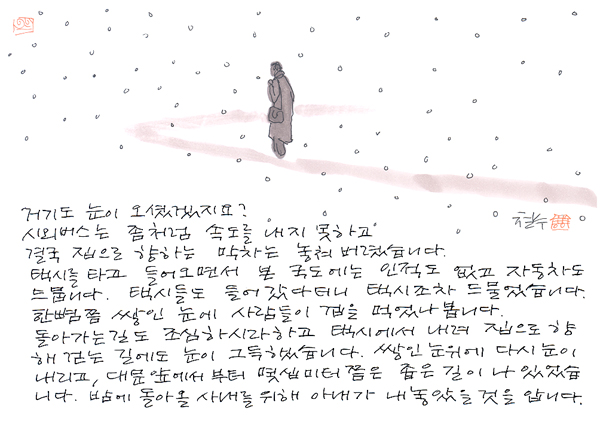 거기도 눈이 오셨겠지요?
시외버스는 좀처럼 속도를 내지 못하고
결국 집으로 향하는 막차는 놓쳐 버렸습니다.
택시를 타고 들어오면서 본 국도에는 인적도 없고 자동차도
드뭅니다. 택시들도 들어갔다더니 택시조차 드물었습니다.
한뼘쯤 쌓인 눈에 사람들이 겁을 먹었나 봅니다.
돌아가는길도 조심하시라하고 택시에서 내려 집으로 향
해 걷는 길에도 눈이 그득했습니다. 쌓인 눈위에 다시 눈이
내리고, 대문앞에서 부터 몇센미터 쯤은 좁은 길이 나 있었습
니다. 밤에 돌아올 사내를 위해 아내가 내놓았을 것을 압니다.
철수